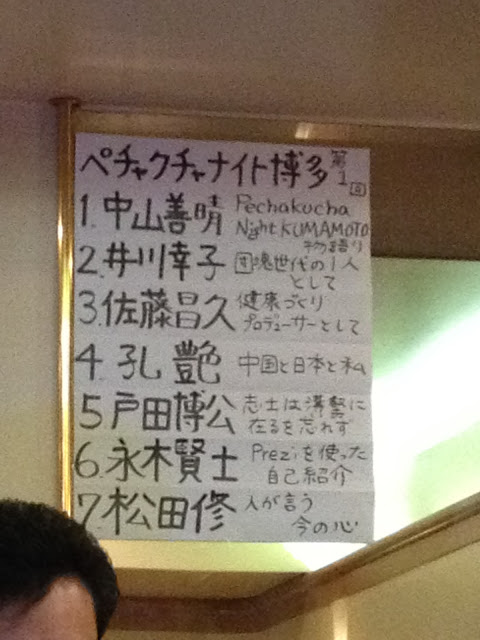 ペチャクチャナイト博多 第1回
1. 中山善晴 Pechakucha
Night KUMAMOTO
物語り
2. 井川幸子 団塊世代の1人
として
3. 佐藤昌久 健康づくり
プロデューサーとして
4. 孔艶 中国と日本と私
5 戸田博公 志士は溝壑に
在るを忘れず
6. 永木賢士 Preziを使った
自己紹介
7. 松田修 人が言う
今の心